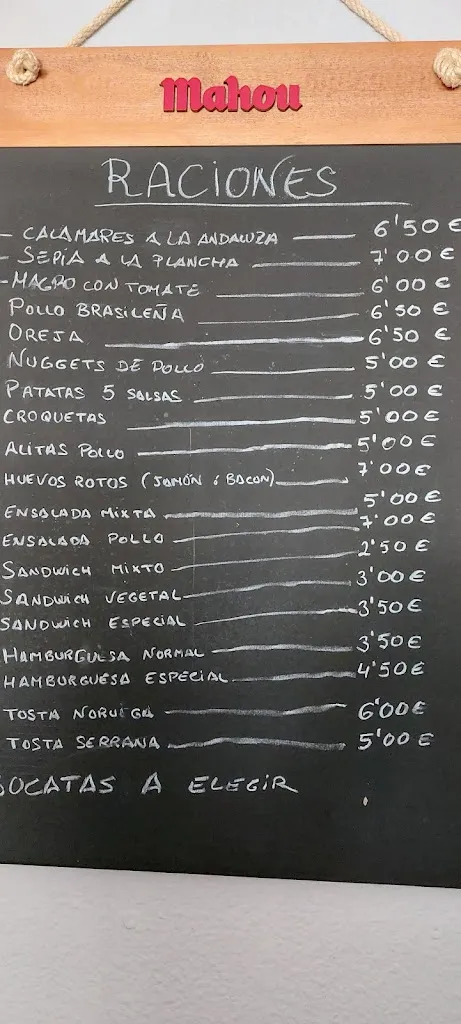 Mahou
RACIONES
- CALAMARES A LA ANDALUZA 6'50 €
- SEPIA A LA PLANCHA 7'00 €
- MAGRO CON TOMATE 6'00 €
POLLO BRASILEÑA 6'50 €
OREJA 6'50 €
NUGGETS DE POLLO 5'00 €
PATATAS 5 SALSAS 5'00 €
CROQUETAS 5'00 €
ALITAS POLLO 5'00 €
HUEVOS ROTOS (JAMÓN ó BACON) 7'00 €
ENSALADA MIXTA 5'00 €
ENSALADA POLLO 7'00 €
SANDWICH MIXTO 2'50 €
SANDWICH VEGETAL 3'00 €
SANDWICH ESPECIAL 3'50 €
HAMBURGUESA NORMAL 3'50 €
HAMBURGUESA ESPECIAL 4'50 €
TOSTA NORUEGA 6'00 €
TOSTA SERRANA 5'00 €
BOCATAS A ELEGIR